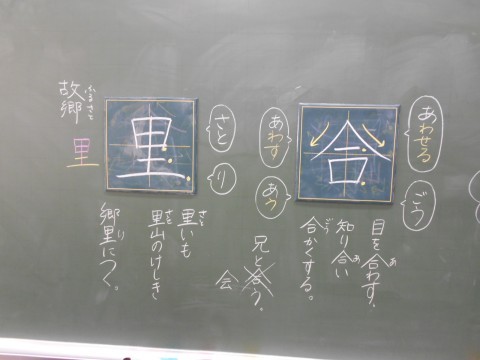 あわせる
ごう
合
あわす
あう
目を合わす。
あ
知り合い
あ
合かくする。
ごう
兄と合う。
会
さと
り
里
故郷
ふるさと
里
里いも
さと
里山のけしき
さと
郷里につく。
り